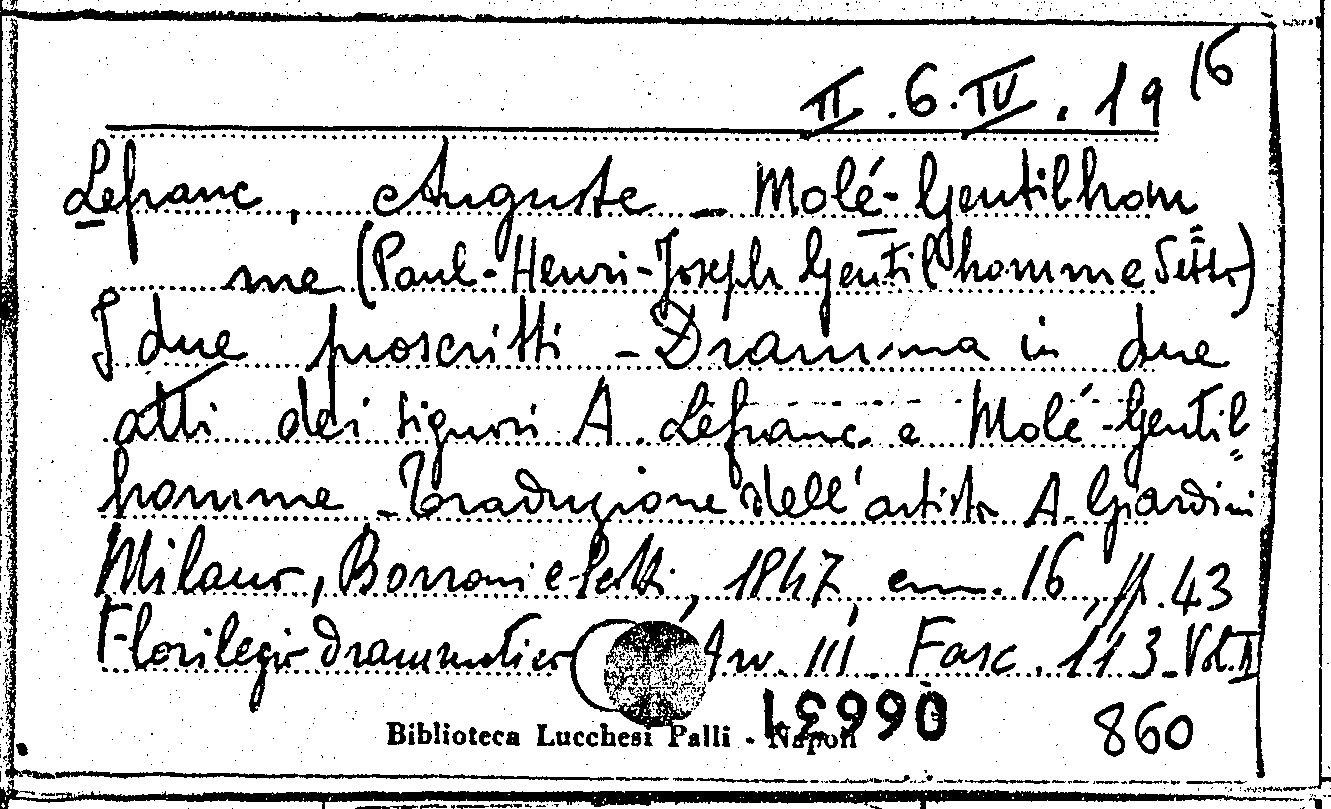 II.6.IV.19 16
Lefranc, Auguste - Molé-Gentilhom
me (Paul-Henri-Joseph Gentilhomme detto)
I due proscritti - Dramma in due
atti dei signori A. Lefranc e Molé-Gentil
homme - Traduzione dell'artista A. Giardini
Milano, Borroni e Scotti, 1847, em. 16, pp. 43
Florilegio drammatico Ser. III. Fasc. 113. Vol.
Biblioteca Lucchesi Palli - Napoli
860